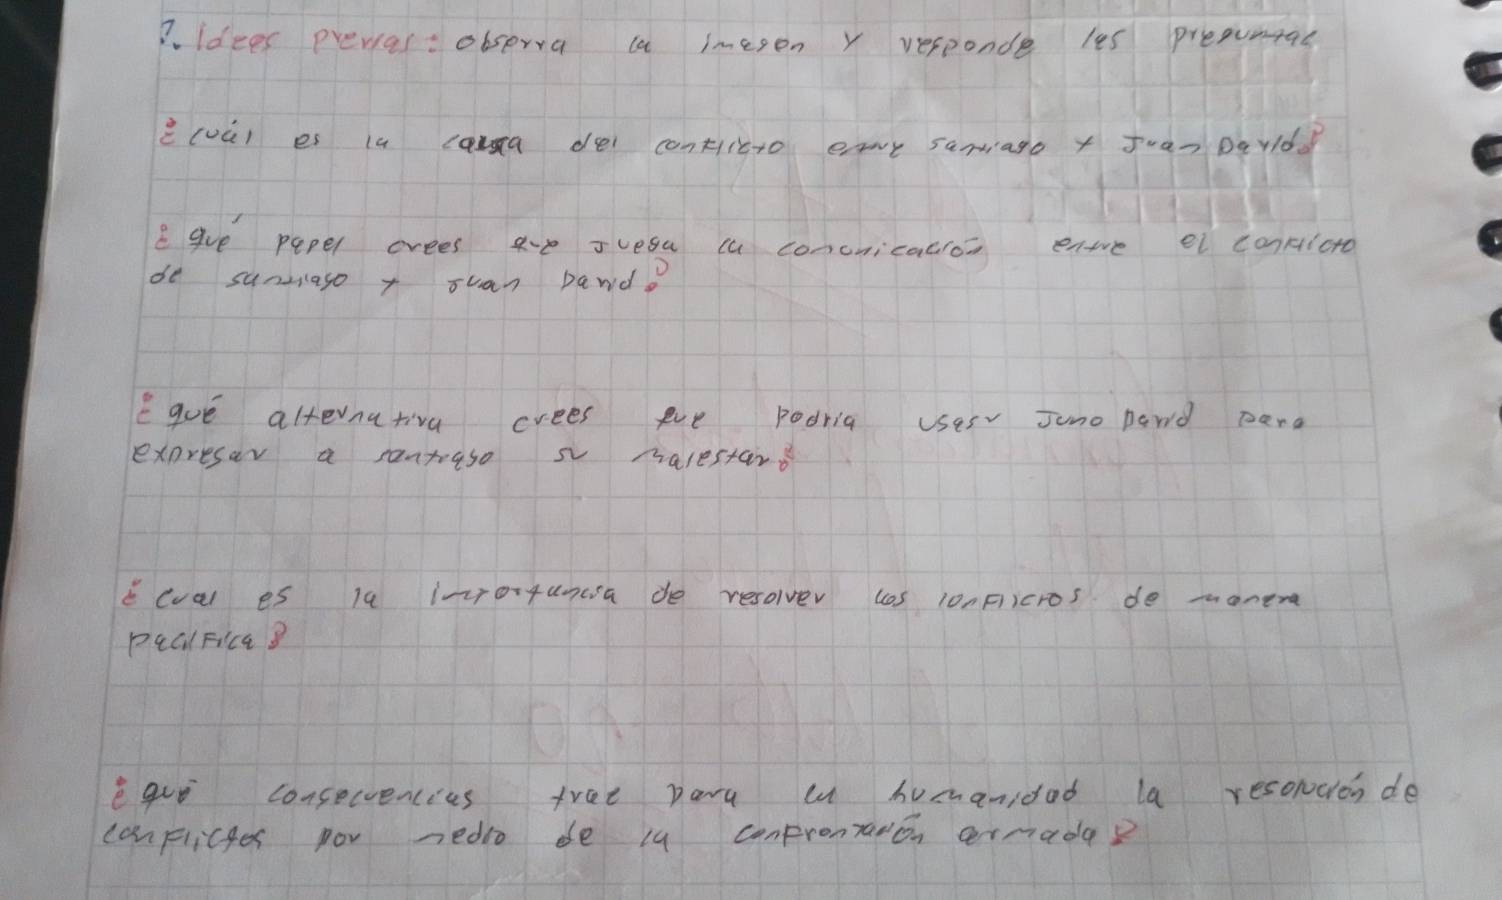 ?. Idees previas: observa la imagen y responde las preguntas
¿cuál es la causa del conflicto entre santiago y Juan David?
¿qué papel crees que juega la comunicación entre el conflicto
de santiago y Juan David?
¿qué alternativa crees que podria usar Juno David para
expresar a santiago su malestar?
¿cual es la importancia de resolver los conflictos de manera
pacifica?
¿qué consecuencias trae para la humanidad la resolución de
conflictos por medio de la confrontación armada?